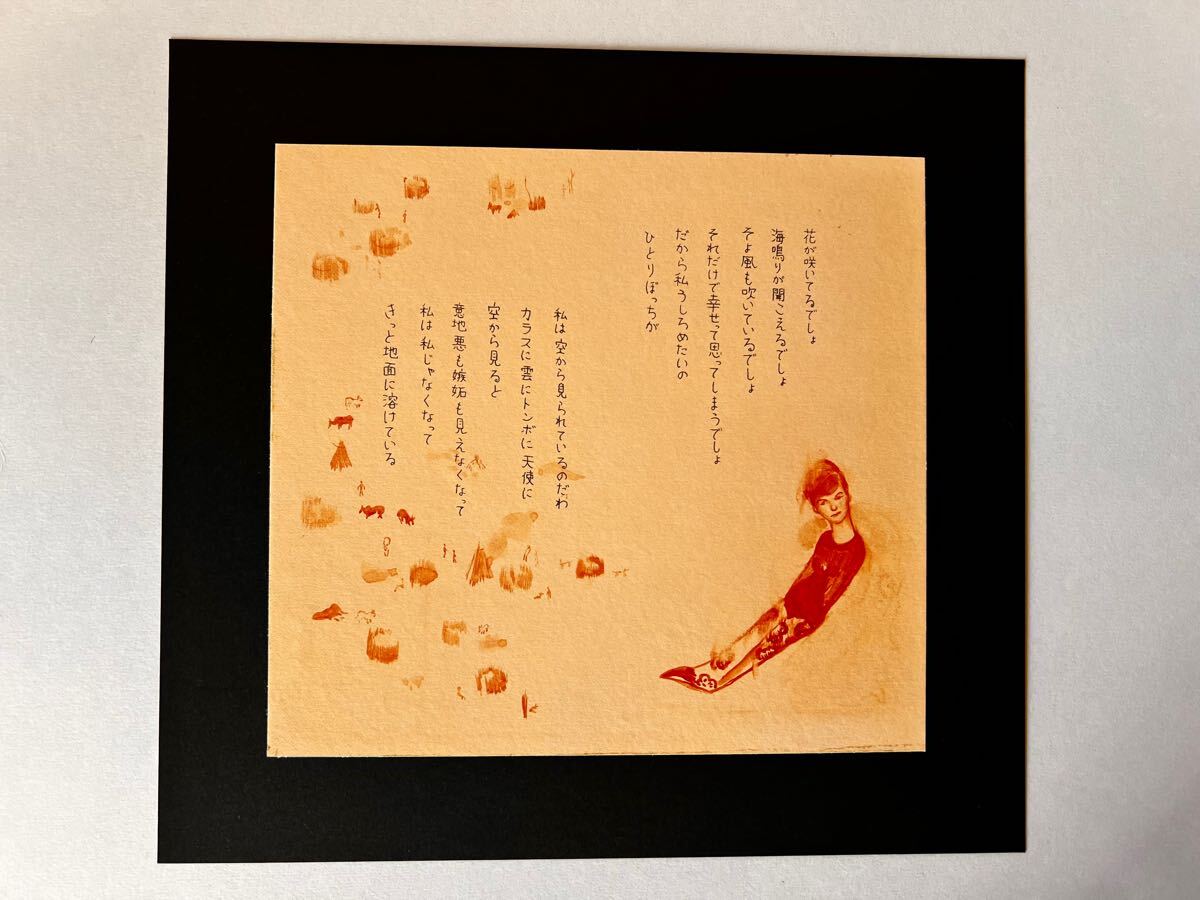 花が咲いてるでしょ
海鳴りが聞こえるでしょ
そよ風も吹いているでしょ
それだけで幸せって思ってしまうでしょ
だから私うしろめたいの
ひとりぼっちが
私は空から見られているのだわ
カラスに雲にトンボに天使に
空から見ると
意地悪も嫉妬も見えなくなって
私は私じゃなくなって
きっと地面に溶けている